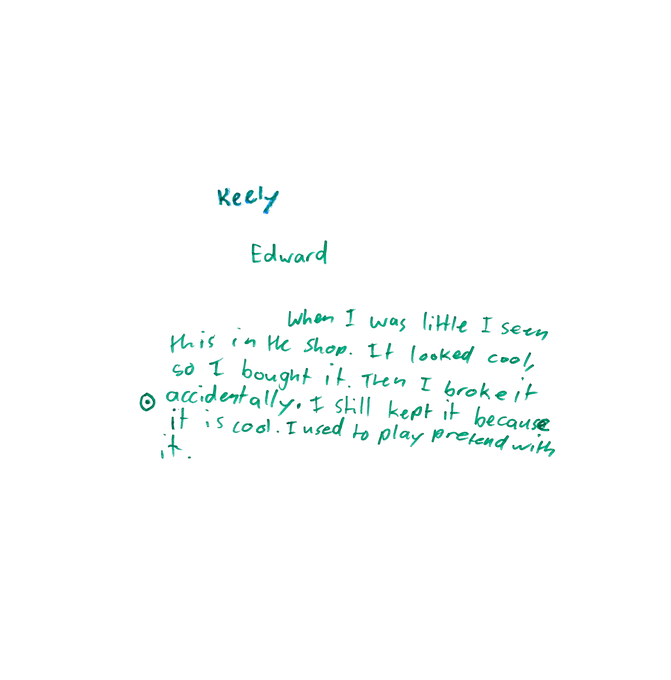 Keely
Edward
When I was little I seen
this in the shop. It looked cool,
so I bought it. Then I broke it
accidentally. I still kept it because
it is cool. I used to play pretend with
it.